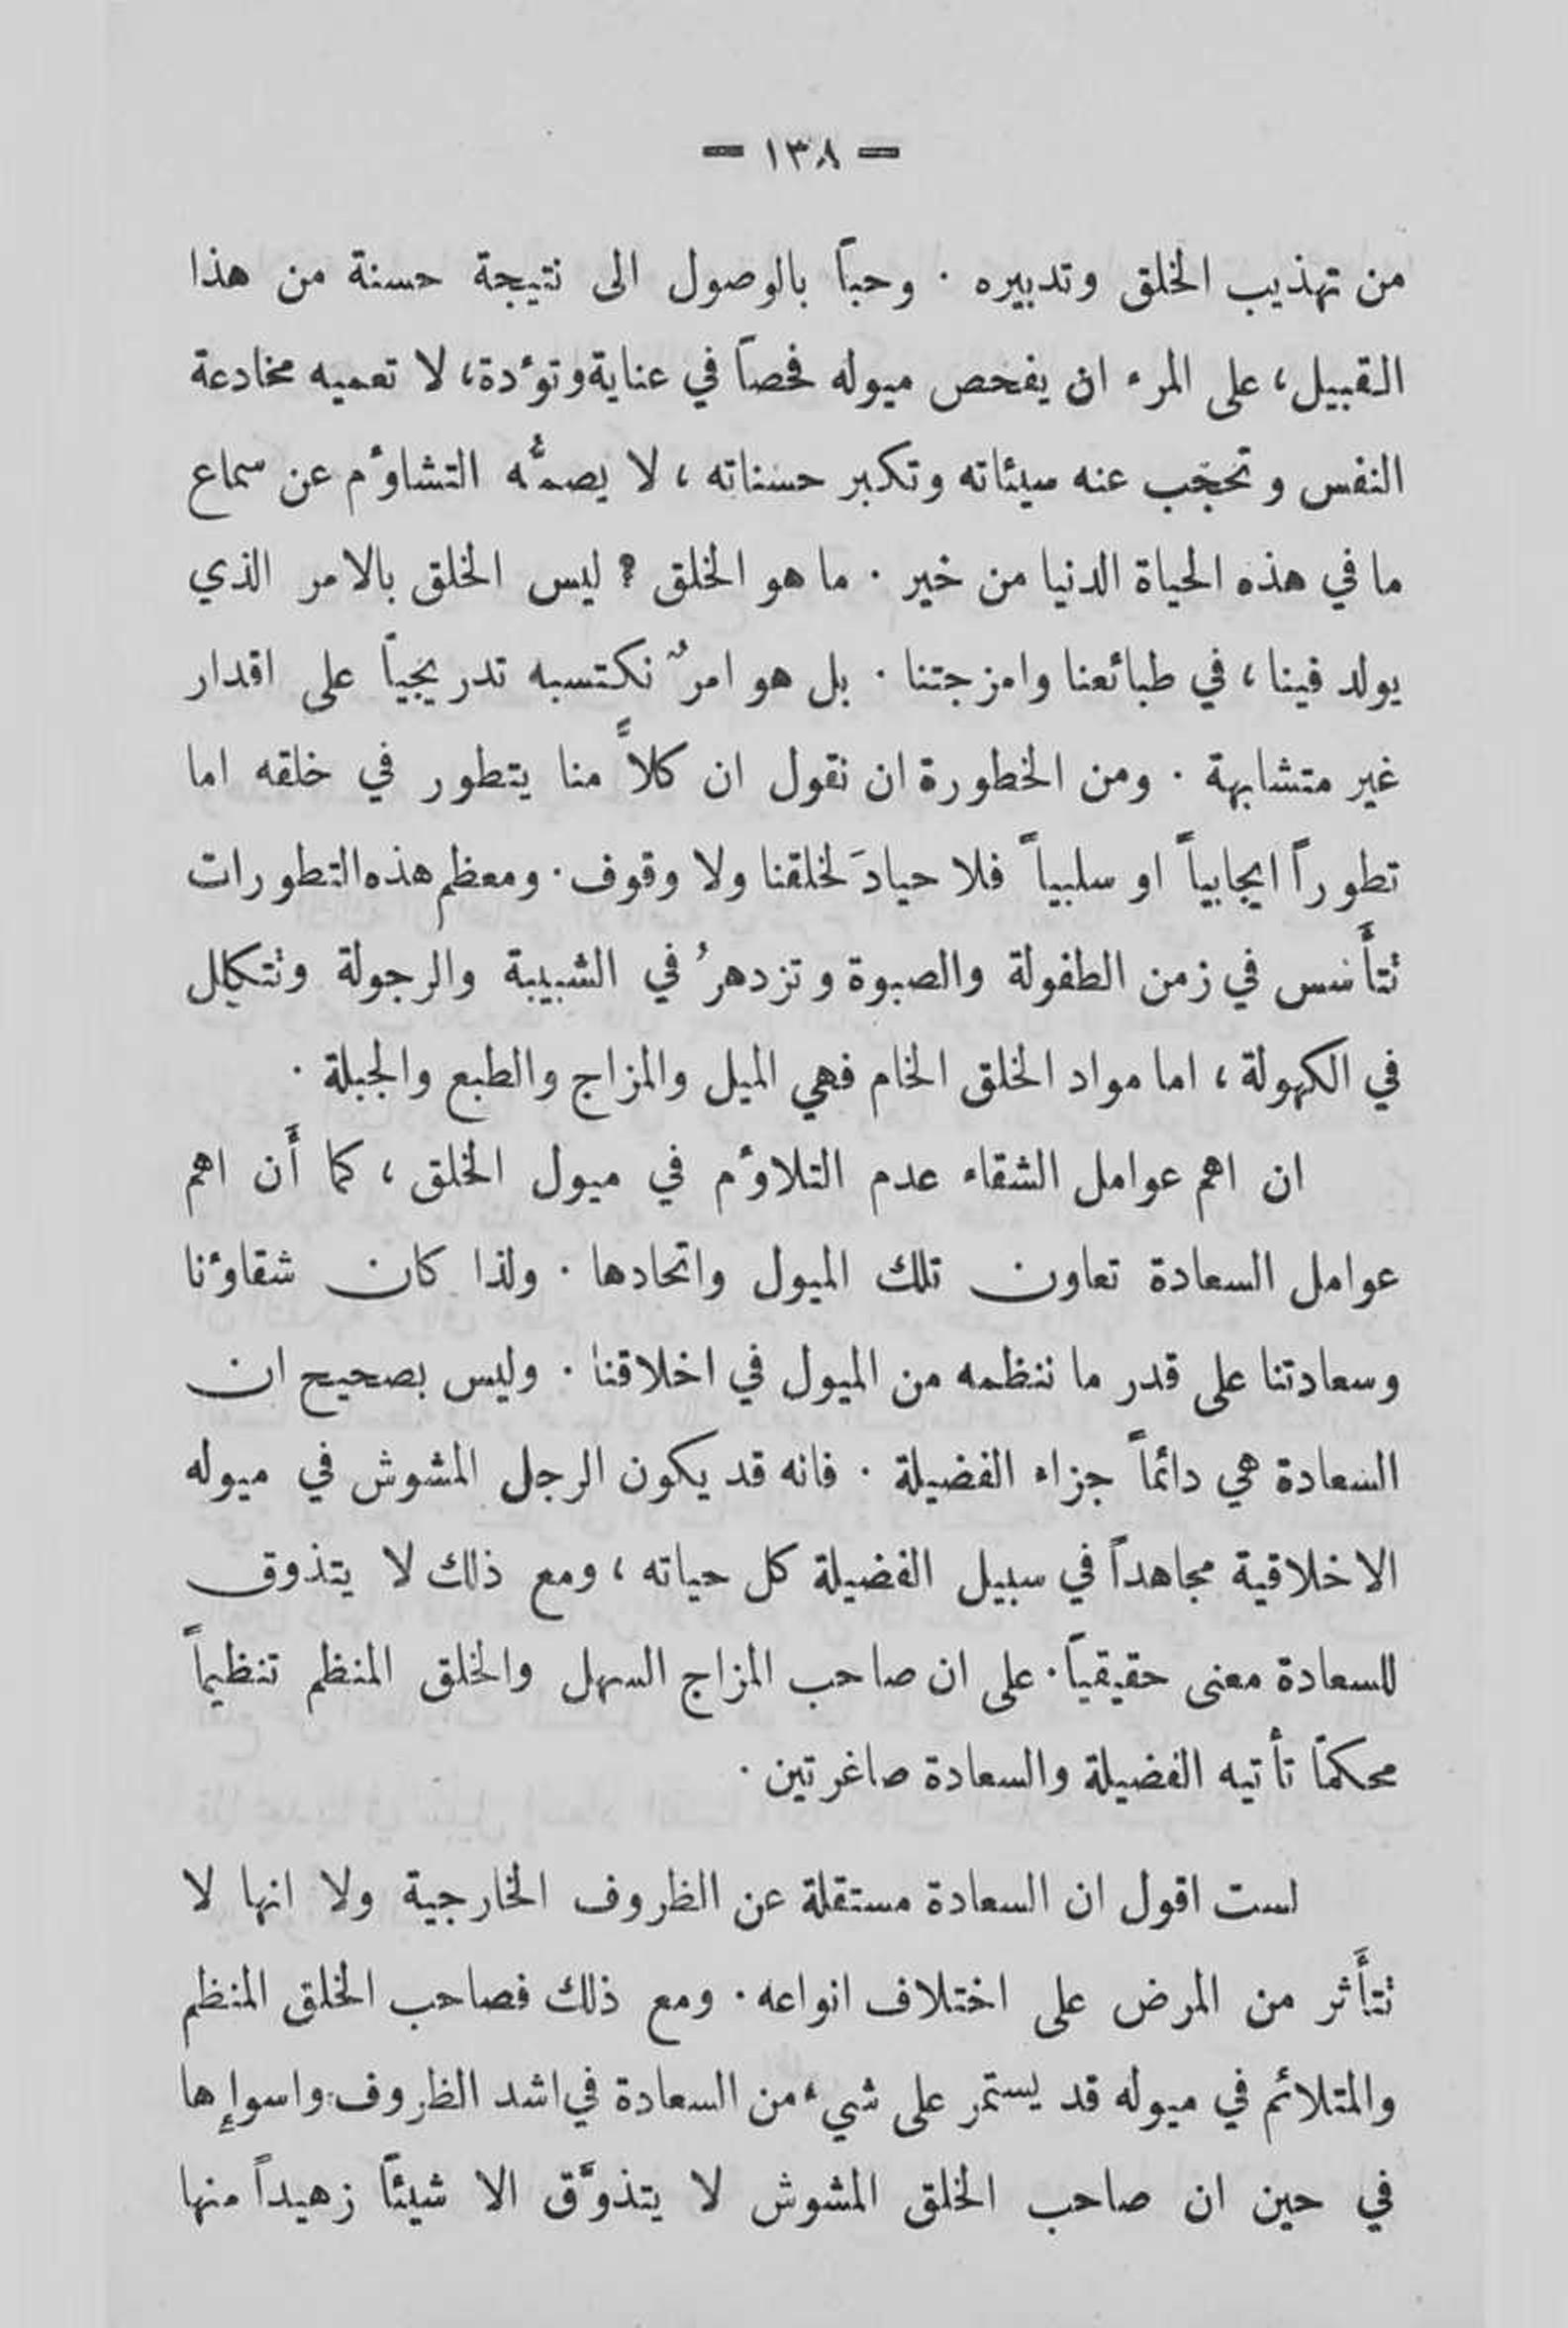 — ١٣٨ —
من تهذيب الخلق وتدبيره . وحباً بالوصول الى نتيجة حسنة من هذا
القبيل، على المرء ان يفحص ميوله فحصاً في عناية وتؤدة، لا تعميه مخادعة
النفس وتحجّب عنه سيئاته وتكبر حسناته، لا يصمُّه التشاؤم عن سماع
ما في هذه الحياة الدنيا من خير . ما هو الخلق ? ليس الخلق بالامر الذي
يولد فينا، في طبائعنا وامزجتنا . بل هو امرٌ نكتسبه تدريجياً على اقدار
غير متشابهة . ومن الخطورة ان نقول ان كلاً منا يتطور في خلقه اما
تطوراً ايجابياً او سلبياً فلا حيادَ لخلقنا ولا وقوف . ومعظم هذه التطورات
تتأسس في زمن الطفولة والصبوة وتزدهرُ في الشبيبة والرجولة وتتكلل
في الكهولة، اما مواد الخلق الخام فهي الميل والمزاج والطبع والجبلة .
ان اهم عوامل الشقاء عدم التلاؤم في ميول الخلق، كما أَن اهم
عوامل السعادة تعاون تلك الميول واتحادها . ولذا كان شقاؤنا
وسعادتنا على قدر ما ننظمه من الميول في اخلاقنا . وليس بصحيح ان
السعادة هي دائماً جزاء الفضيلة . فانه قد يكون الرجل المشوش في ميوله
الاخلاقية مجاهداً في سبيل الفضيلة كل حياته، ومع ذلك لا يتذوق
للسعادة معنى حقيقياً . على ان صاحب المزاج السهل والخلق المنظم تنظيماً
محكماً تأتيه الفضيلة والسعادة صاغرتين .
لست اقول ان السعادة مستقلة عن الظروف الخارجية ولا انها لا
تتأَثر من المرض على اختلاف انواعه . ومع ذلك فصاحب الخلق المنظم
والمتلائم في ميوله قد يستمر على شيء من السعادة في اشد الظروف واسوإها
في حين ان صاحب الخلق المشوش لا يتذوَّق الا شيئاً زهيداً منها